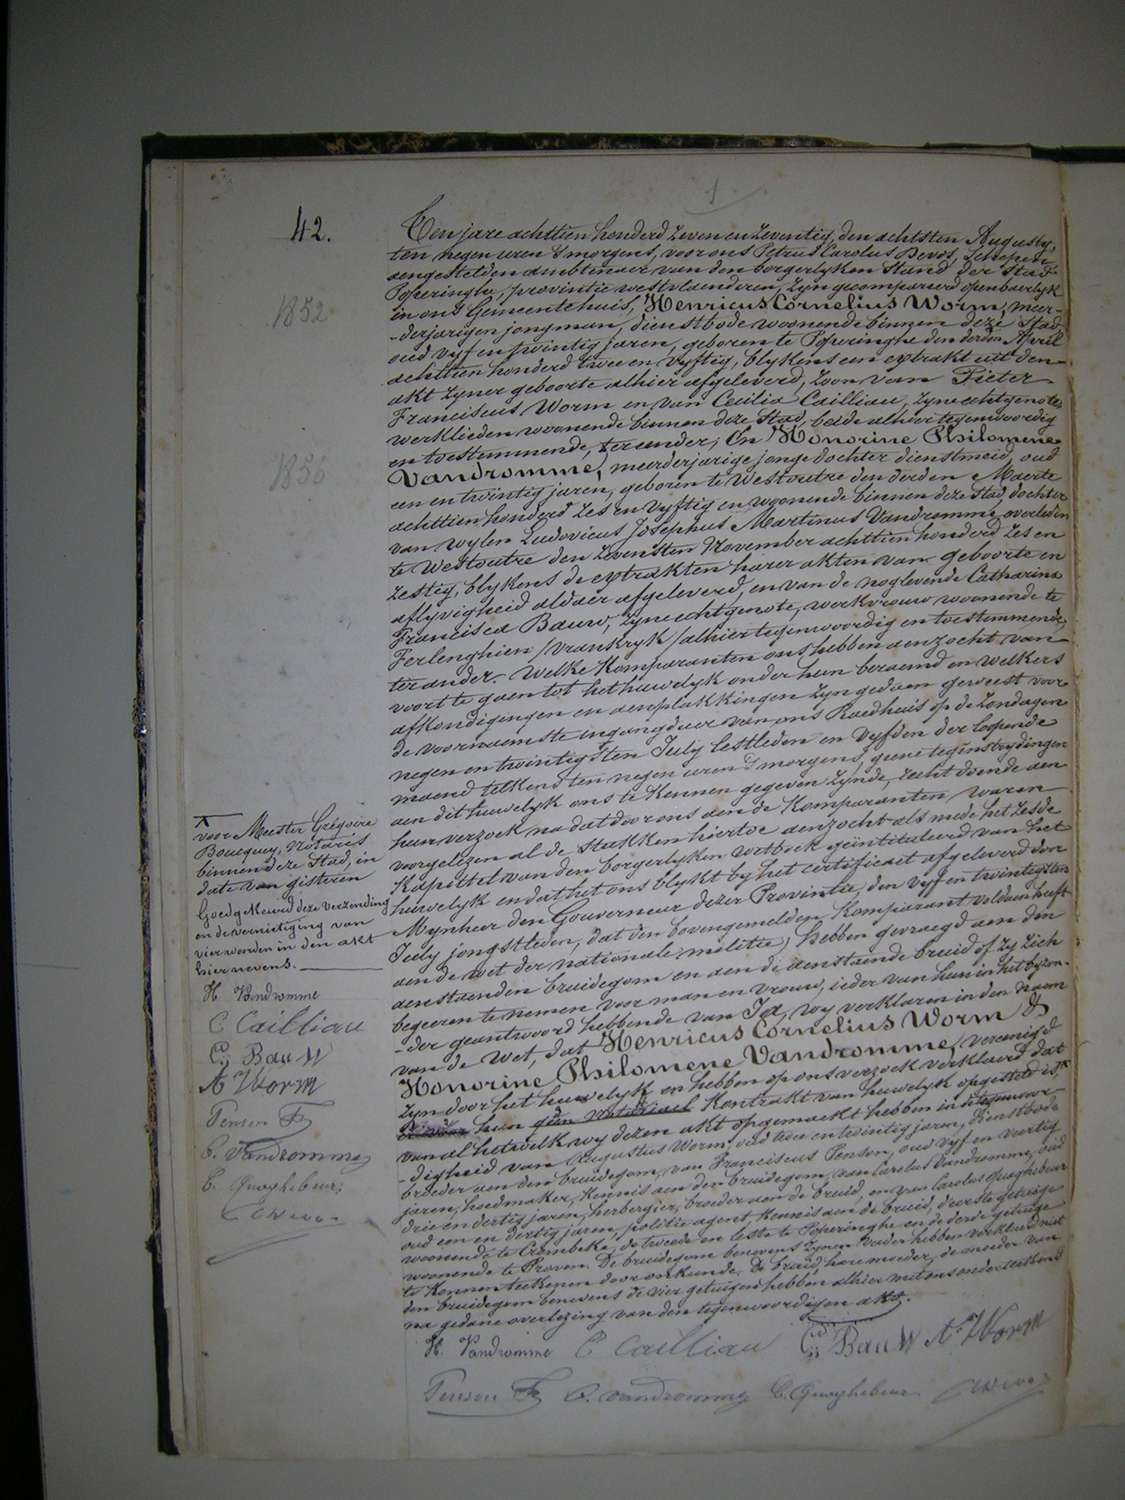 1
42.
Ten jare achttien honderd zeven en zeventig, den achtsten Augusty,
ten negen uren 's morgens, voor ons Petrus Carolus Devos, Schepen
aengestelden ambtenaer van den borgerlyken Stand der Stad
Poperinghe, provintie westvlaenderen, zyn gecompareerd openbaerlyk
in ons Gemeentehuis, Henricus Cornelius Worm, meer-
-derjarigen jongman, dienstbode woonende binnen deze Stad
oud vyf en twintig jaren, geboren te Poperinghe den derden April
achttien honderd twee en vyftig, blykens een extrakt uit den
akt zyner geboorte alhier afgeleverd, zoon van Pieter
Franciscus Worm en van Cecilia Cailliau, zyne echtgenote
werklieden woonende binnen deze Stad, beide alhier tegenwoordig
en toestemmende, ter eender; En Honorine Philomene
Vandromme, meerderjarige jonge dochter dienstmeid, oud
een en twintig jaren, geboren te Westoutre den derden Maerte
achttien honderd zes en vyftig en woonende binnen deze Stad, dochter
van wylen Ludovicus Josephus Martinus Vandromme, overleden
te Westoutre den zevensten November achttien honderd zes en
zestig, blykens de extrakten harer akten van geboorte en
aflyvigheid aldaer afgeleverd, en van de noglevende Catharina
Francisca Bauw, zyne echtgenote, werkvrouw woonende te
Ferlenghien /Vrankryk/ alhier tegenwoordig en toestemmende,
ter ander.- Welke Komparanten ons hebben aenzocht van
voort te gaen tot het huwelyk onder hun beraemd en welkers
afkondigingen en aenplakkingen zyn gedaen geweest voor
de voornaemste ingangdeur van ons Raedhuis op de Zondagen
negen en twintigsten July lestleden en vyfden der loopende
maend telkens ten negen uren 's morgens, geene tegenstrydingen
aen dit huwelyk ons te kennen gegeven zynde, recht doende aen
hun verzoek na dat door ons aen de Komparanten, waren
voorgelezen al de Stukken hiertoe aenzocht als mede het zesde
Kapittel van den borgerlyken wetboek geïntituleerd van het
huwelyk en dat het ons blykt by het certificaet afgeleverd door
Mynheer den Gouverneur dezer Provintie, den vyf en twintigsten
July jongstleden, dat den bovengemelden Komparant voldaen heeft
aen de wet der nationale militie, hebben gevraegd aen den
aenstaenden bruidegom en aen de aenstaende bruid of zy zich
begeeren te nemen voor man en vrouw, ieder van hun in het byzon-
-der geantwoord hebbende van Ja, wy verklaren in den naem
van de Wet, dat Henricus Cornelius Worm &
Honorine Philomene Vandromme, vereenigd
zyn door het huwelyk en hebben op ons verzoek verklaerd dat
hun geen notarieel Kontrakt van huwelyk opgesteld is,
van al hetwelk wy dezen akt opgemaekt hebben in tegenwoor-
-digheid van Augustus Worm, oud twee en twintig jaren, Dienstbode
broeder aen den bruidegom, van Franciscus Penson, oud vyf en veertig
jaren, hoedmaker, kennis aen den bruidegom, van Carolus Vandromme, oud
drie en dertig jaren, herbergier, broeder aen de bruid, en van Carolus Quaghebeur
oud een en dertig jaren, politie agent, kennis aen de bruid, d'eerste getuige
woonende te Crombeke, de tweede en leste te Poperinghe en de derde getuige
woonende te Proven. De bruidegom benevens zynen vader hebben verklaerd niet
te konnen teekenen door onkunde, de bruid, hare moeder, de moeder van
den bruidegom benevens de vier getuigen hebben alhier met ons onderteekend
na gedane overlezing van den tegenwoordigen akt.
H. Vandromme C Cailliau Cy Bauw A Worm
Penson Fr C. Vandromme C. Quaghebeur
1852
1856
voor Meester Grégoire
Boucquey, Notaris
binnen deze Stad, in
date van gisteren
Goedgekeurd deze verzending
en de vernietiging van
vier worden in den akt
hiernevens.
H. Vandromme
C Cailliau
Cy Bauw
A Worm
Penson Fr
C. Vandromme
C. Quaghebeur